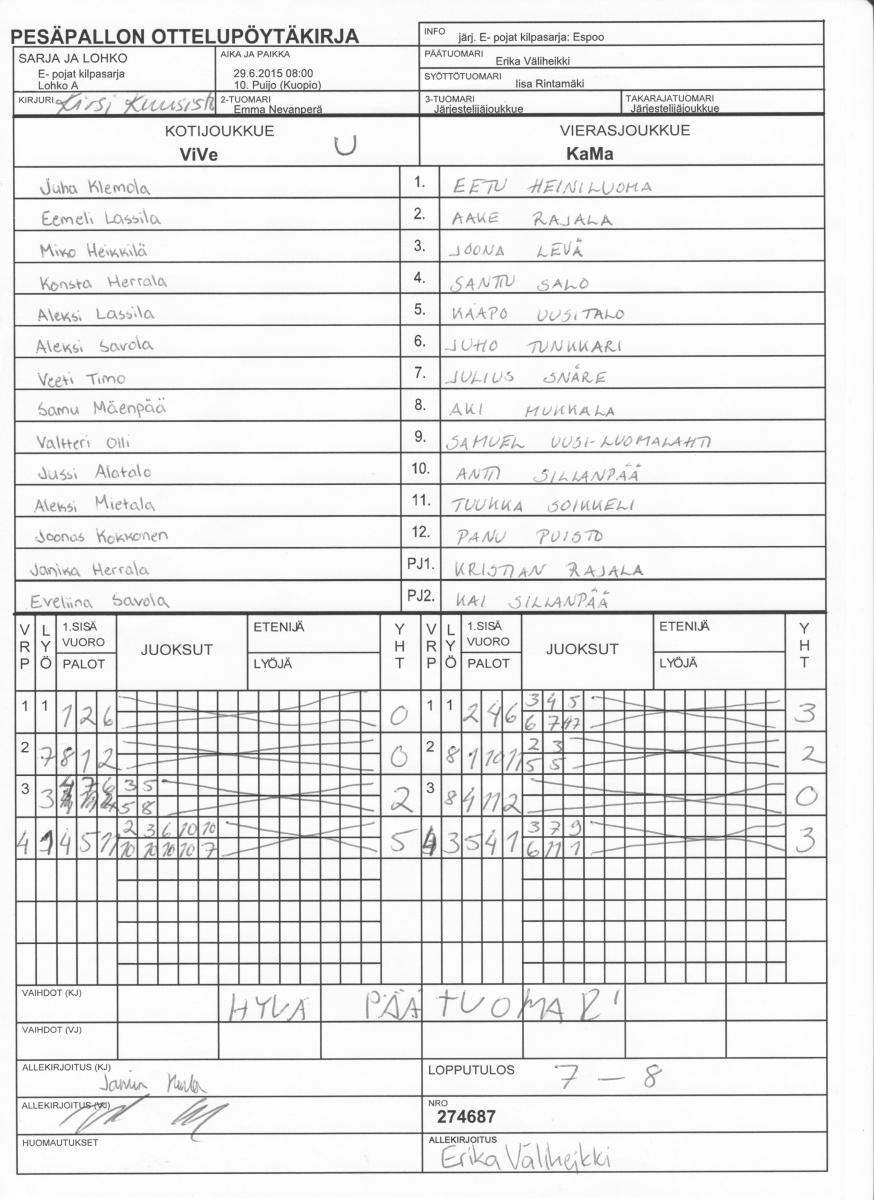 PESÄPALLON OTTELUPÖYTÄKIRJA
INFO järj. E- pojat kilpasarja: Espoo
SARJA JA LOHKO
E- pojat kilpasarja
Lohko A
AIKA JA PAIKKA
29.6.2015 08:00
10. Puijo (Kuopio)
PÄÄTUOMARI
Erika Väliheikki
SYÖTTÖTUOMARI
Iisa Rintamäki
KIRJURI Kirsi Kuusisto
2-TUOMARI
Emma Nevanperä
3-TUOMARI
Järjestelijäjoukkue
TAKARAJATUOMARI
Järjestelijäjoukkue
KOTIJOUKKUE
ViVe U
VIERASJOUKKUE
KaMa
Juha Klemola 1. EETU HEINILUOMA
Eemeli Lassila 2. AAKE RAJALA
Miko Heikkilä 3. JOONA LEVÄ
Konsta Herrala 4. SANTTU SALO
Aleksi Lassila 5. KAAPO UUSITALO
Aleksi Savola 6. JUHO TUNKKARI
Veeti Timo 7. JULIUS SNÅRE
Samu Mäenpää 8. AKI MUKKALA
Valtteri Olli 9. SAMUEL UUSI-LUOMALAHTI
Jussi Alatalo 10. ANTTI SILLANPÄÄ
Aleksi Mietala 11. TUUKKA SOIKKELI
Joonas Kokkonen 12. PANU PUISTO
Janika Herrala PJ1. KRISTIAN RAJALA
Eveliina Savola PJ2. KAI SILLANPÄÄ
VRP LYÖ 1.SISÄ VUORO PALOT JUOKSUT ETENIJÄ LYÖJÄ YHT VRP LYÖ 1.SISÄ VUORO PALOT JUOKSUT ETENIJÄ LYÖJÄ YHT
1 1 1 2 6 0 1 1 2 4 6 3 4 5 3
6 7
2 7 8 1 2 0 2 8 1 10 11 2 3 2
5 5
3 3 4 7 6 3 5 2 3 8 4 11 2 0
5 8
4 1 4 5 11 2 3 6 10 10 5 4 3 5 4 1 3 7 9 3
10 10 10 10 7 6 11 1
VAIHDOT (KJ) HYVÄ PÄÄTUOMARI
VAIHDOT (VJ)
ALLEKIRJOITUS (KJ)
LOPPUTULOS 7 – 8
ALLEKIRJOITUS (VJ)
NRO
274687
HUOMAUTUKSET
ALLEKIRJOITUS
Erika Väliheikki